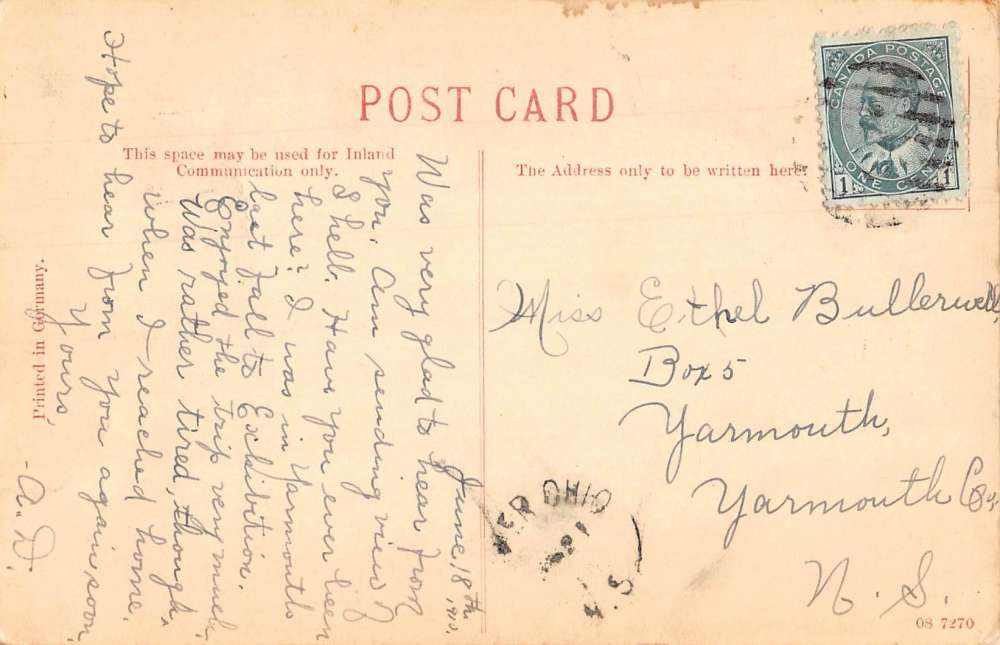 POST CARD
This space may be used for Inland
Communication only.
The Address only to be written here.
CANADA POSTAGE
ONE CENT
1 1
June, 18th, 
Was very glad to hear from
you. Am sending view of
Shelb. Have you ever been
here? I was in Yarmouth
last Fall to Exhibition.
Enjoyed the trip very much.
Was rather tired, though,
when I reached home.
Hope to hear from you again soon,
Yours,
- A. D.
Miss Ethel Bullerwell,
Box 5
Yarmouth,
Yarmouth Co.,
N. S.
ER OHIO
N.S
Printed in Germany.
08 7270